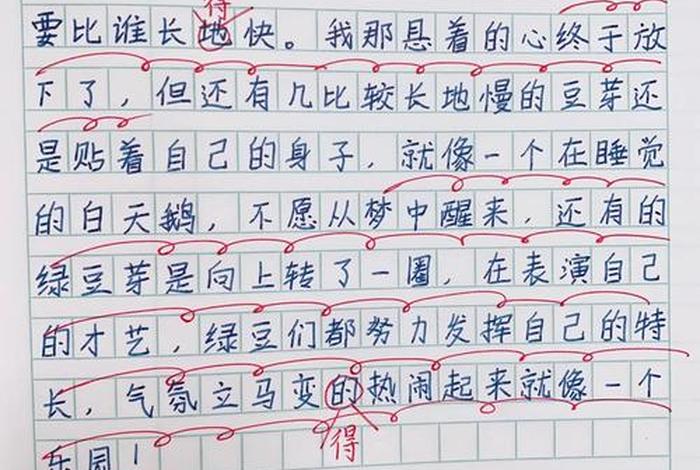 得
要比谁长地快。我那悬着的心终于放
下了，但还有几比较长地慢的豆芽还
是贴着自己的身子，就像一个在睡觉
的白天鹅，不愿从梦中醒来，还有的
绿豆芽是向上转了一圈，在表演自己
的才艺，绿豆们都努力发挥自己的特
长，气氛立马变的热闹起来就像一个
乐园！
得